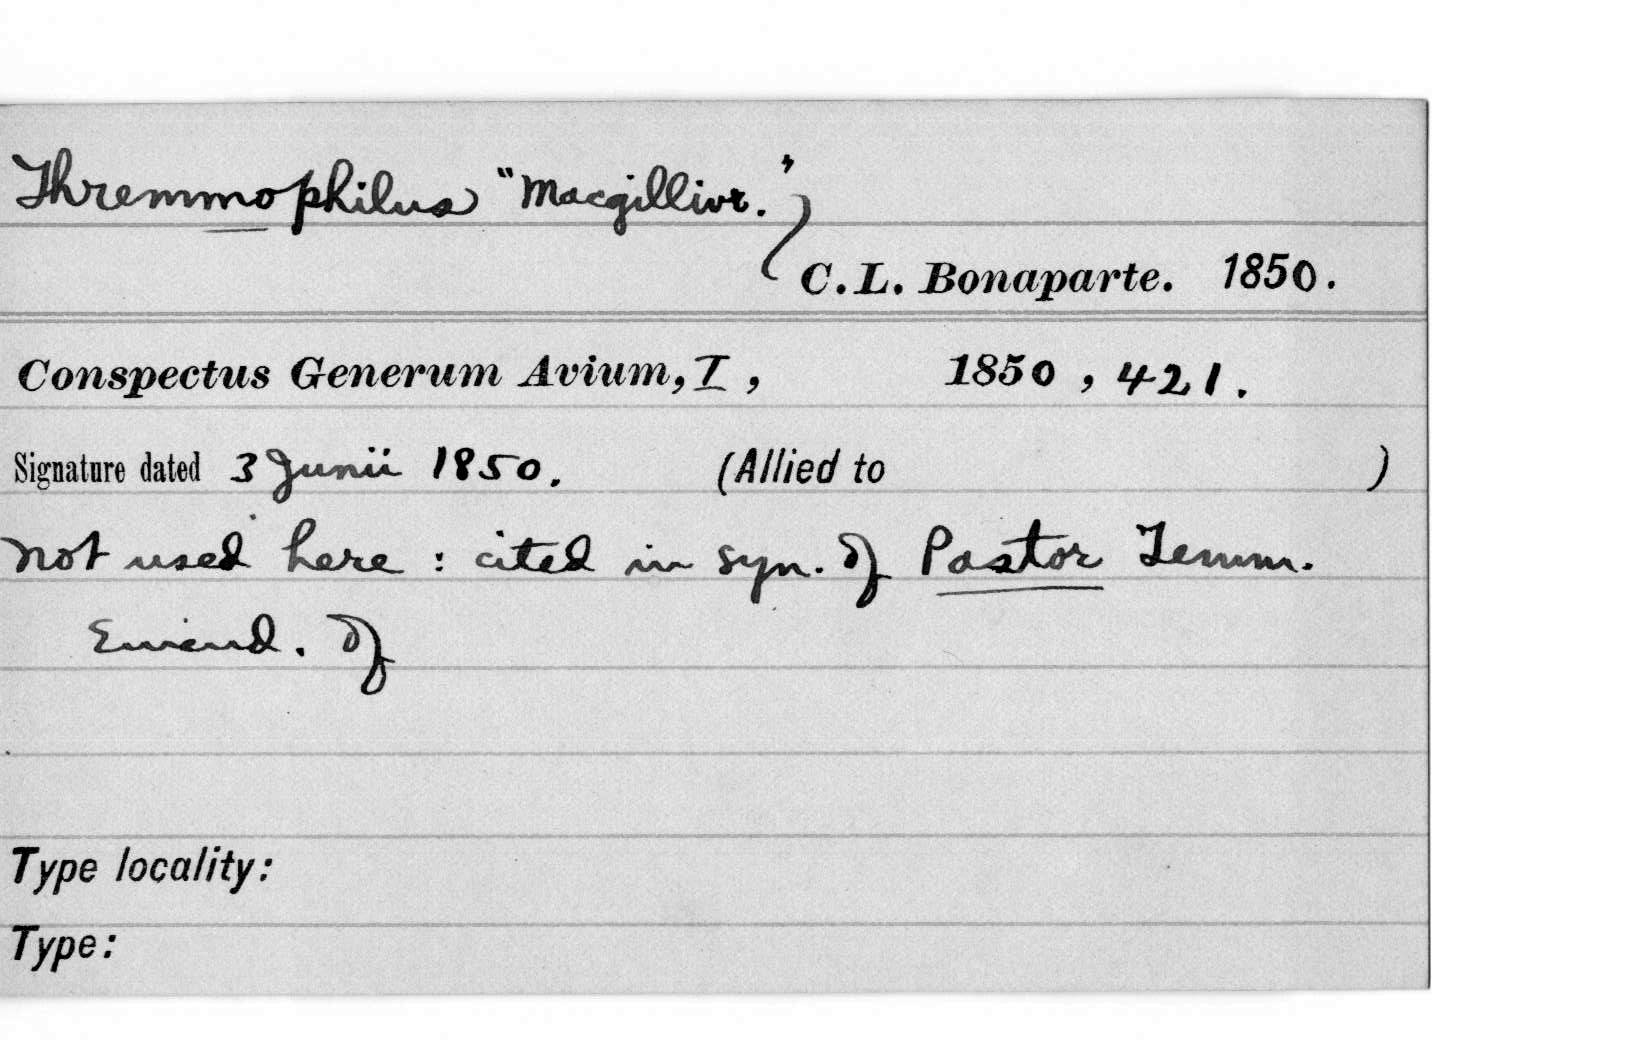 Thremmophilus "Macgillivr."
C. L. Bonaparte. 1850.
Conspectus Generum Avium, I, 1850, 421.
Signature dated 3 Junii 1850. (Allied to )
Not used here : cited in syn. of Pastor Temm.
Emend. of
Type locality:
Type: